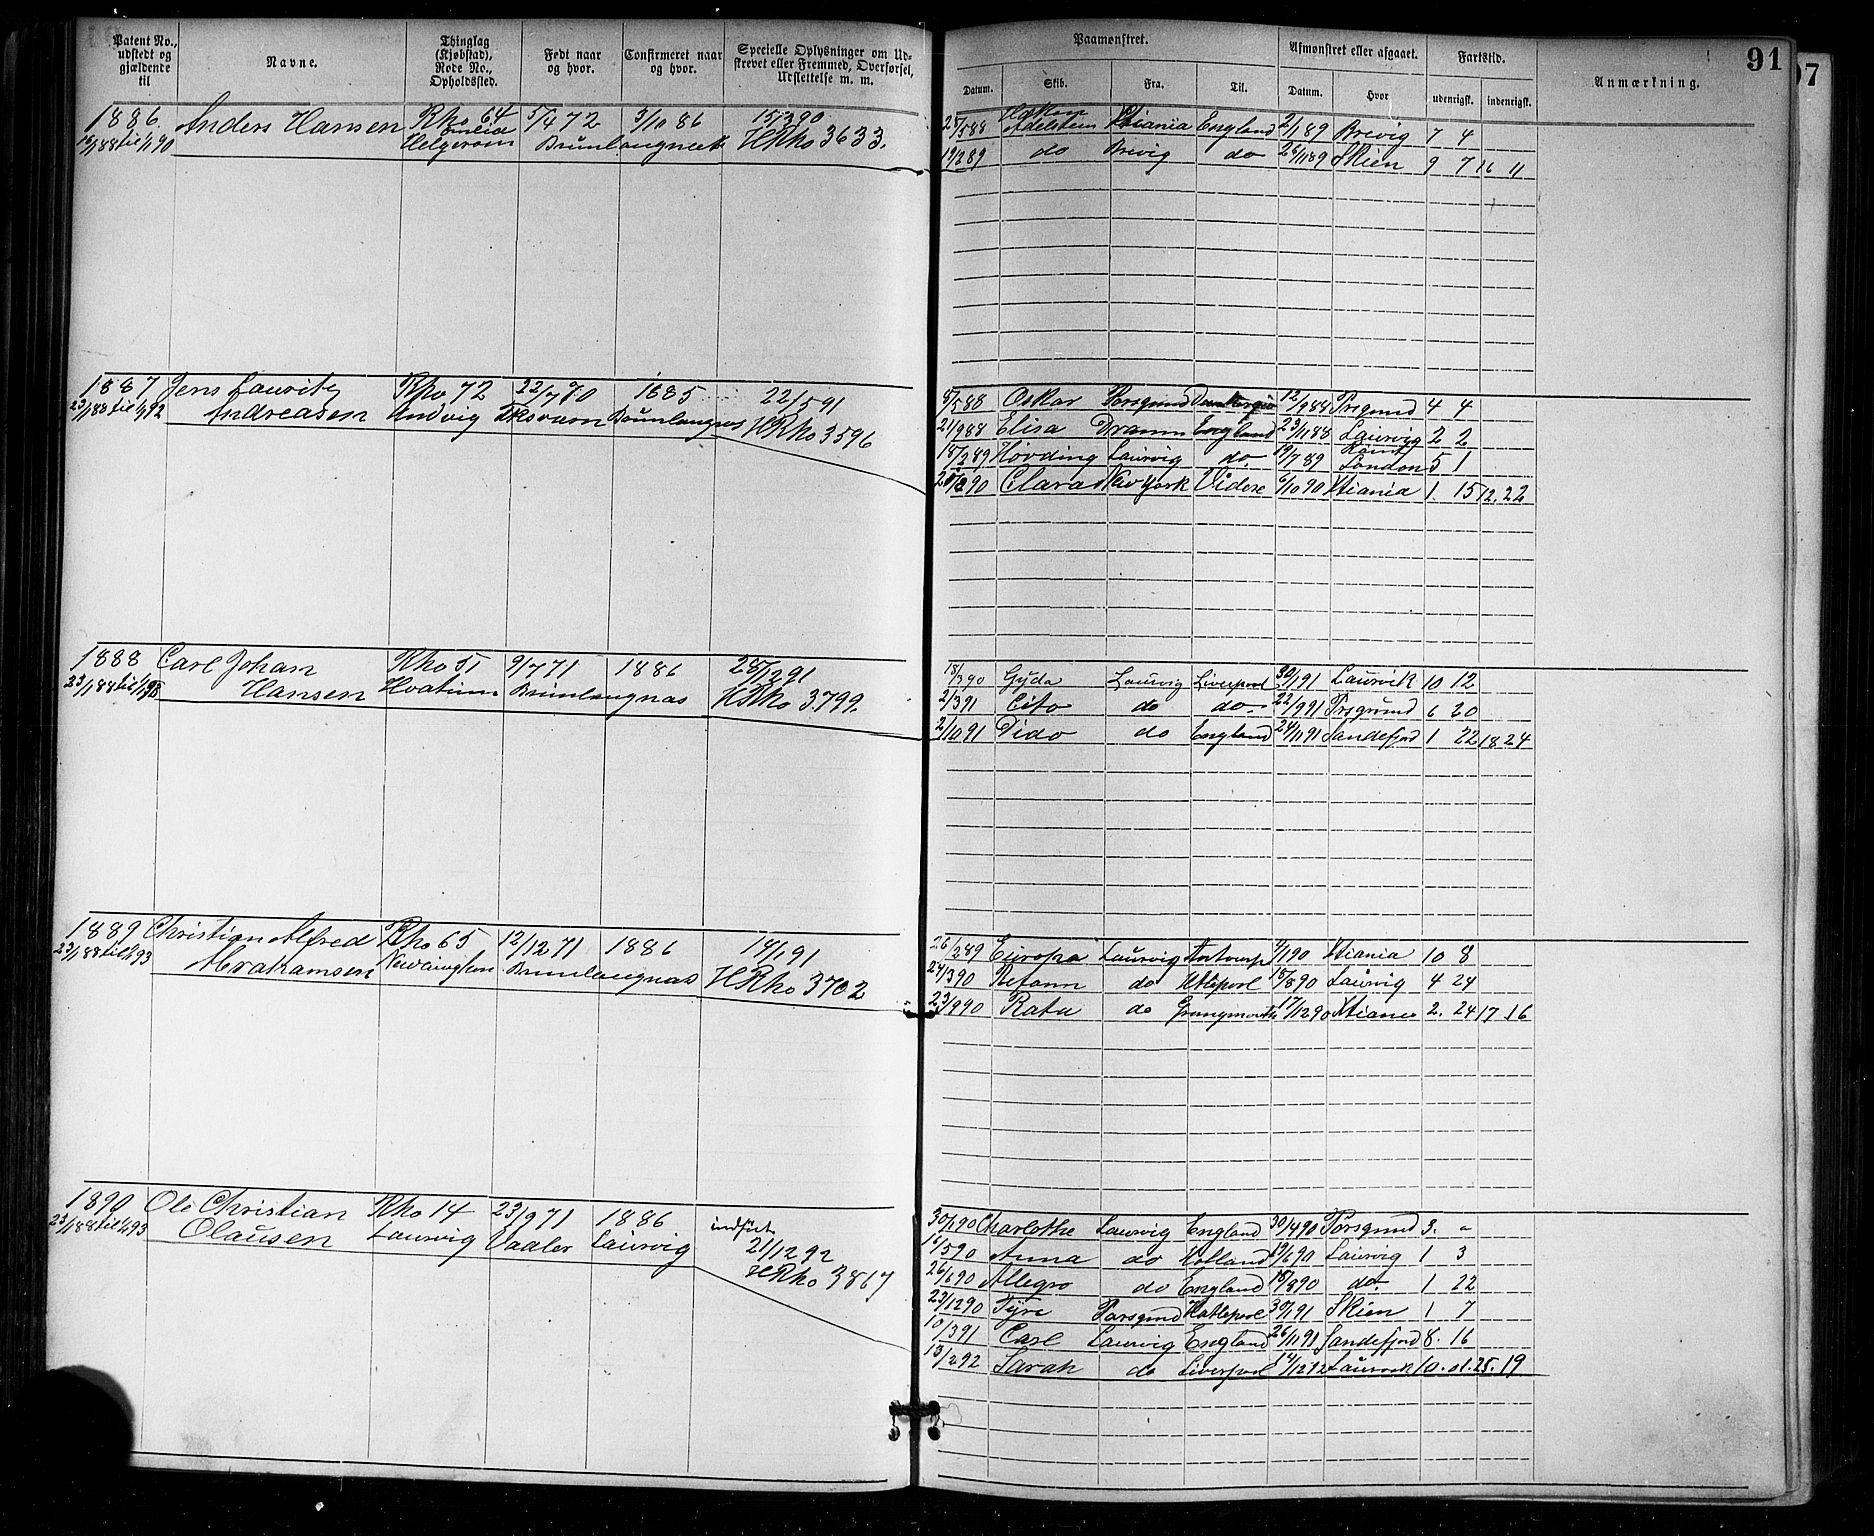 Patent No., udstedt og gjældende til
Navne.
Thinglag (Kjøbstad), Rode No., Opholdssted.
Født naar og hvor.
Confirmeret naar og hvor.
Specielle Oplysninger om Udskrevet eller Fremmed, Overførsel, Udslettelse m. m.
Paamønstret.
Datum.
Skib.
Fra.
Til.
Afmønstret eller afgaaet.
Datum.
Hvor
Fartstid.
udenrigsk.
indenrigsk.
Anmærkning.
91
97
1886 Anders Hansen Rno 64 5/4 72 3/10 86 15/3 90
Helgeroen Brunlangnæs HRno 3633.
25/5 88 Hakon Adelsten Xtiania England 2/1 89 Brevig 7 4
19/2 89 do Brevig do 26/11 89 Skien 9 7 16 11
1887 Jens Lauritz Rno 72 22/7 70 1885 22/5 91
23/1 88 til 1/1 92 Andreasen Undvig Brunlangnæs HRno 3596
5/5 88 Oskar Porsgrund 12/9 88 Prsgrund 4 4
21/9 88 Elisa Dramm England 23/11 88 Laurvig 2 2
18/2 89 Høvding Laurvig do. 19/7 89 London 5 1
90 Clara New York Videre 6/10 90 Xtiania 1 15 12. 22
1888 Carl Johan Rno 51 9/7 71 1886 28/12 91
23/1 88 til Hansen Hvatum Brunlangnæs HRno 3799.
18/3 90 Gyda Laurvig Liverpool 30/1 91 Laurvik 10 12
2/3 91 Cito do do. 22/9 91 Prsgrund 6 20
2/10 91 Dido do England 24/11 91 Sandefjord 1 22 18 24
1889 Christian Alfred Rno 65 12/12 71 1886 14/1 91
23/1 88 til 1/1 93 Abrahamsen Nevlunghavn Brunlangnas HRno 3702
26/2 89 Europa Laurvig Antwerp 9/1 90 Xtiania 10 8
24/3 90 Reform do Htlepool 18/8 90 Laurvig 4 24
23/9 90 Rota do Grangmouth 17/12 90 Xtiania 2. 24 17 16
1890 Ole Christian Rno 14 23/9 71 1886 indført
23/1 88 til 1/1 93 Olausen Laurvig Vaaler Laurvig 21/12 92
HRno 3867
30/1 90 Charlothe Laurvig England 30/4 90 Porsgrund 3. "
16/5 90 Anna do Holland 19/6 90 Laurvig 1 3
26/6 90 Allegro do England 18/8 90 do. 1 22
23/12 90 Tyra Porsgrund Hatlepool 30/1 91 Skien 1 7
10/3 91 Carl Laurvig England 26/11 91 Sandefjord 8. 16
13/2 92 Sarah do Liverpool 14/12 92 Laurvik 10. 01. 25. 19